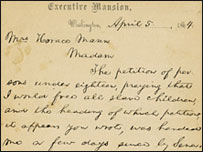 Executive Mansion,
Washington, April 5, 1864.
Mrs Horace Mann
Madam
The petition of per-
sons under eighteen, praying that
I would free all slave children
and the heading of which petition
it appears you wrote, was handed
me a few days since by Sena-